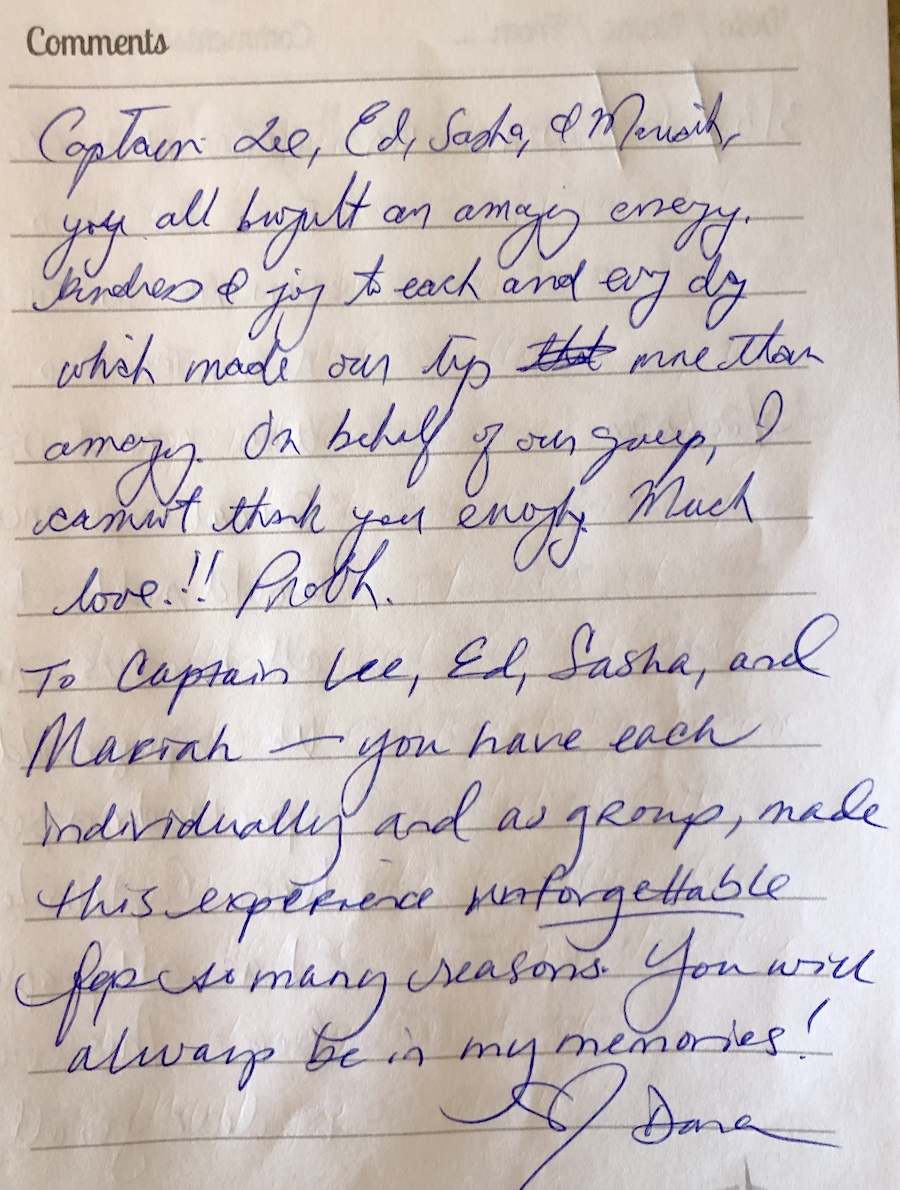 Comments
Captain Lee, Ed, Sasha, & Mariah,
you all brought an amazing energy.
kindness & joy to each and every day
which made our trip that more than
amazing. On behalf of our group, I
cannot thank you enough. Much
love!!
To Captain Lee, Ed, Sasha, and
Mariah — you have each
individually and as group, made
this experience unforgettable
for so many reasons. You will
always be in my memories!
♡ Dana